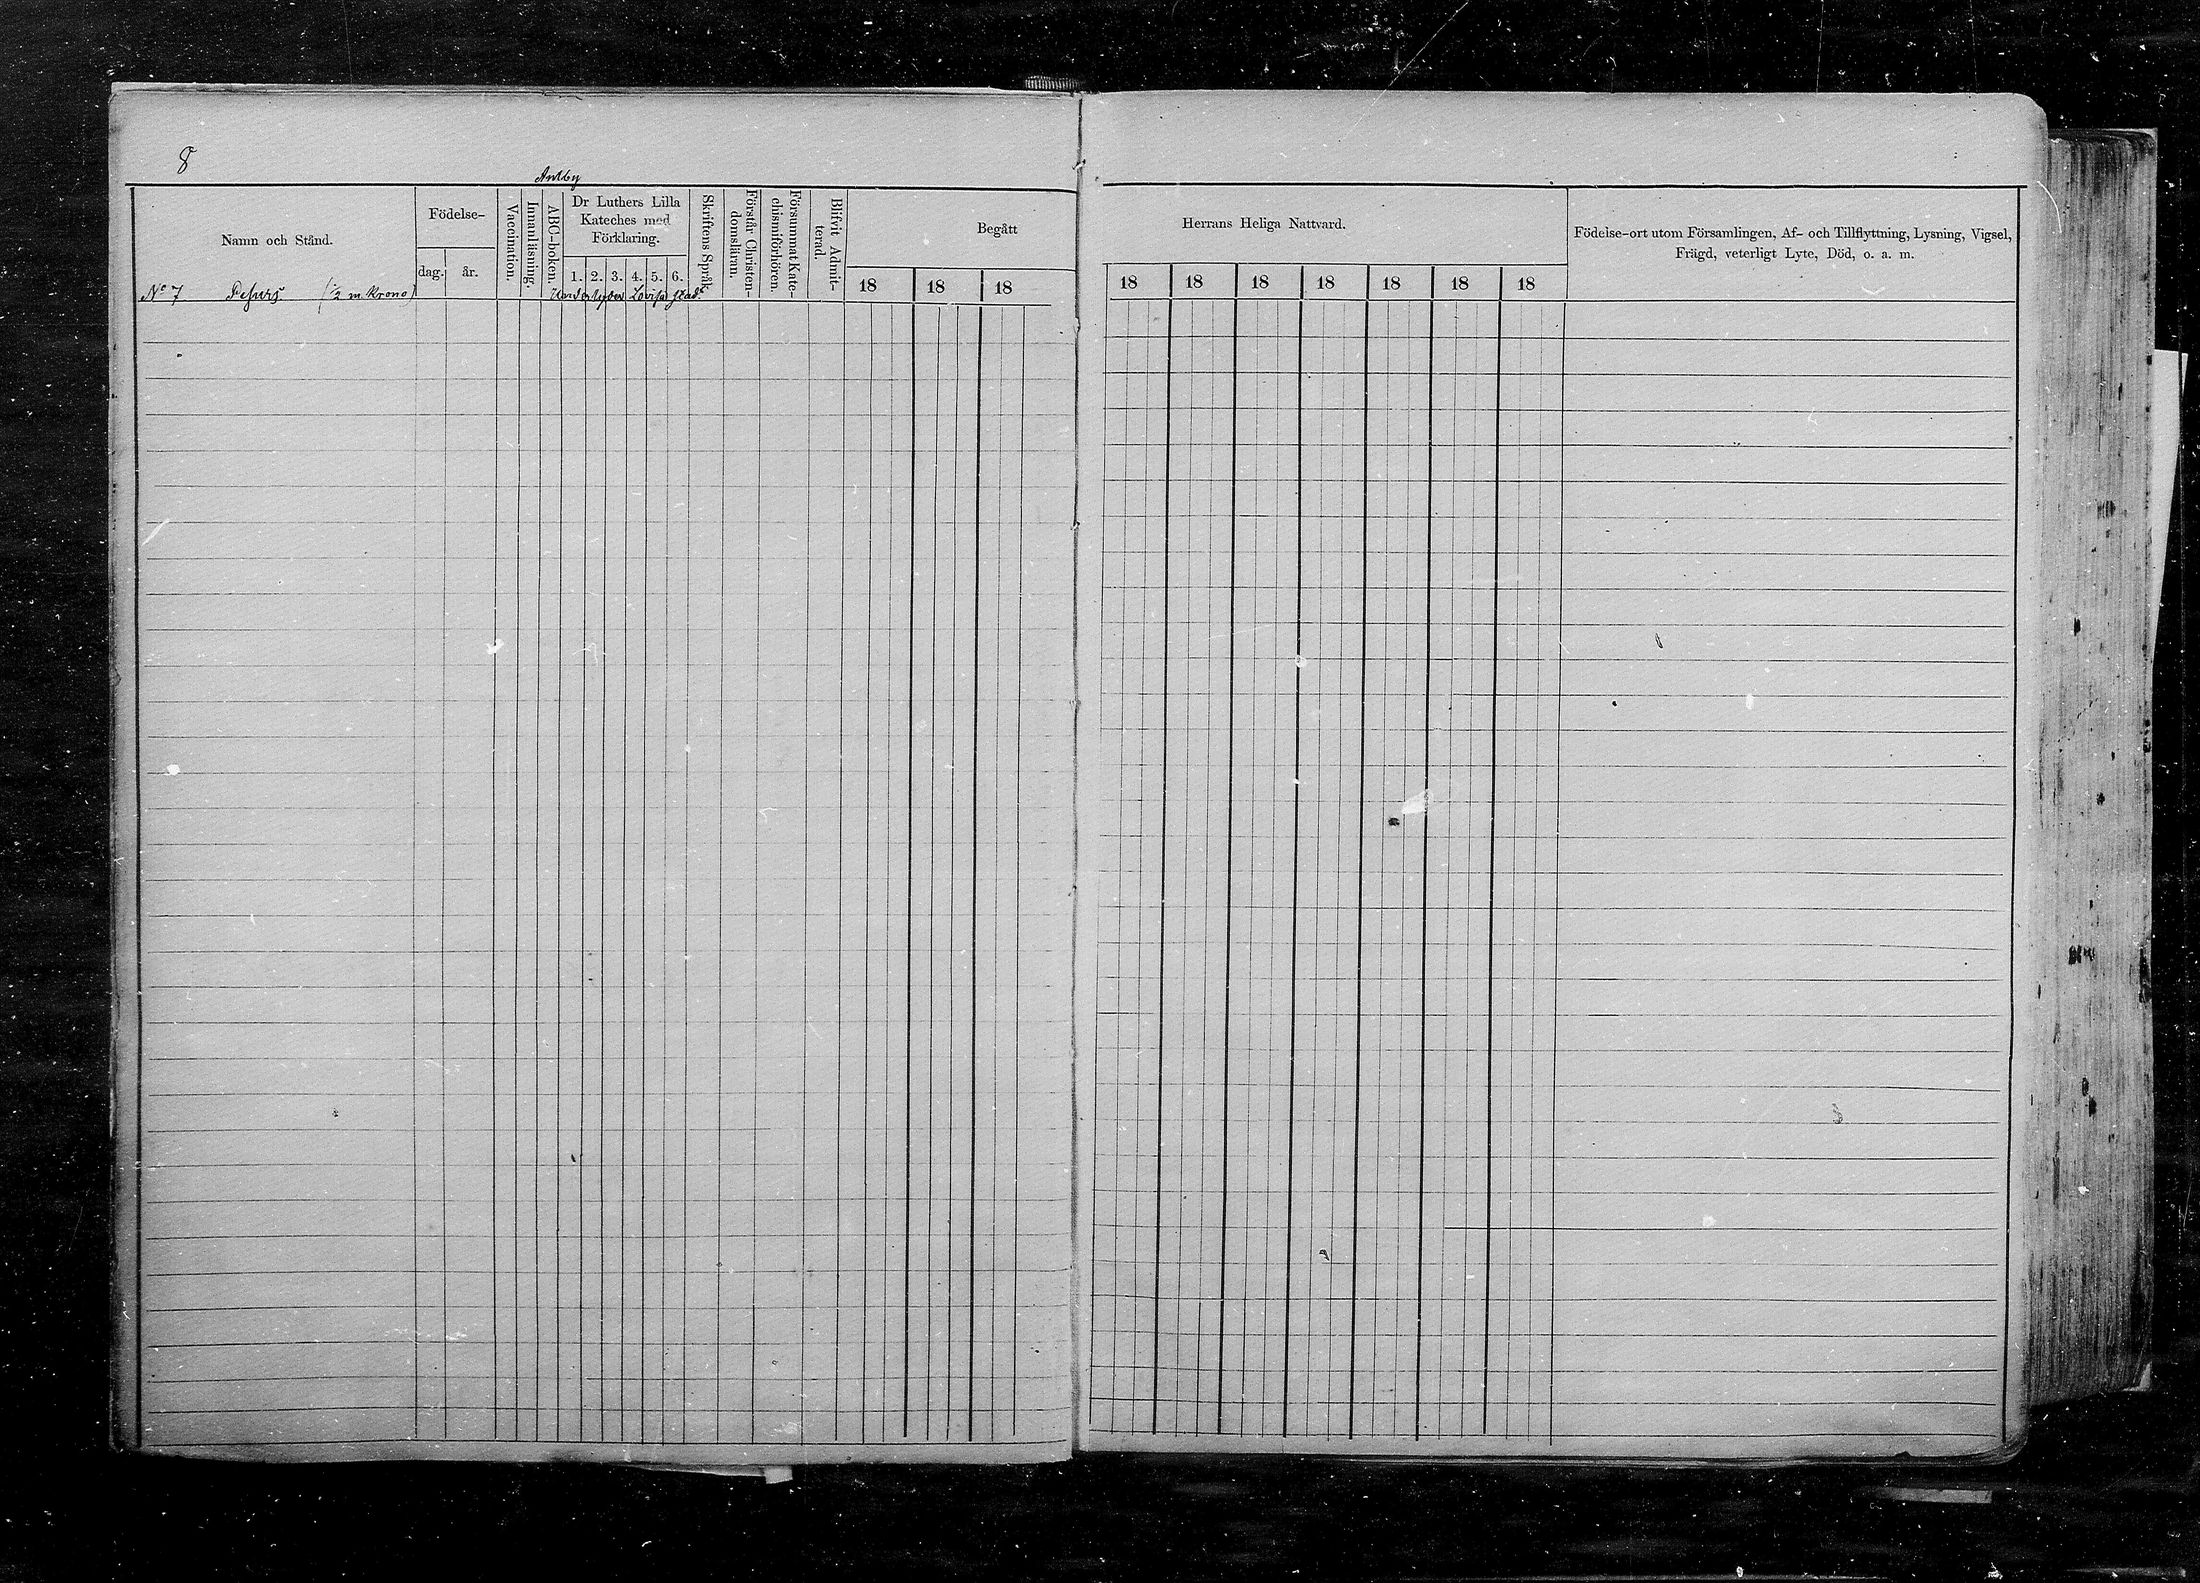 8
Antby
Namn och Stånd.
Födelse-
dag.
år.
Vaccination.
Innanläsning.
ABC-boken.
Dr Luthers Lilla
Kateches med
Förklaring.
1. 2. 3. 4. 5. 6.
Skriftens Språk.
Förstår Christen-
domsläran.
Försummat Kate-
chismiförhören.
Blifvit Admit-
terad.
Begått
18 18 18
Nº 7 (½ m. krono)
Underlyder Lovisa stad.
Herrans Heliga Nattvard.
18 18 18 18 18 18 18
Födelse-ort utom Församlingen, Af- och Tillflyttning, Lysning, Vigsel,
Frägd, veterligt Lyte, Död, o. a. m.